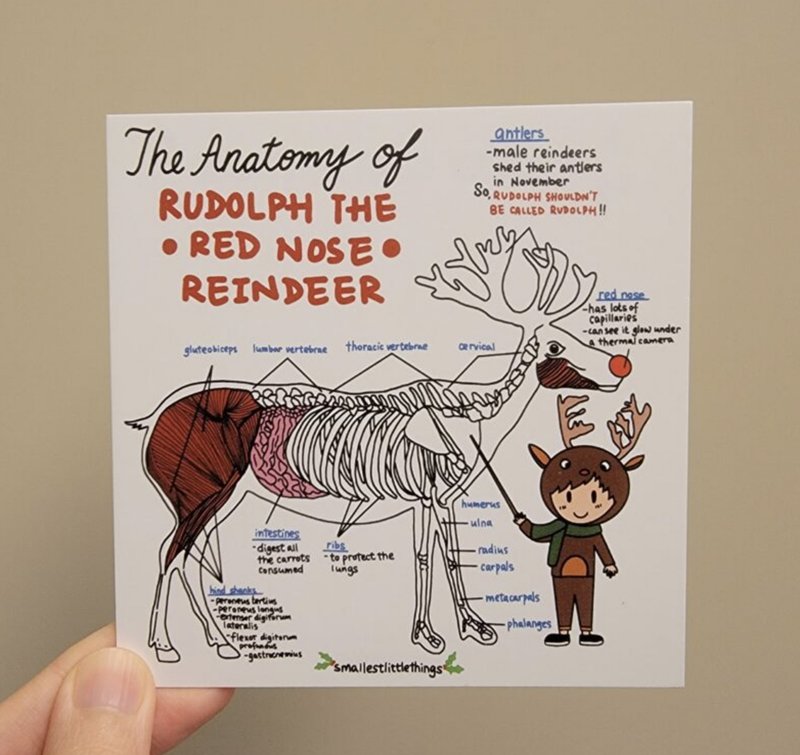 The Anatomy of
RUDOLPH THE
• RED NOSE •
REINDEER
antlers
-male reindeers
shed their antlers
in November
So, RUDOLPH SHOULDN'T
BE CALLED RUDOLPH!!
red nose
-has lots of
capillaries
-can see it glow under
a thermal camera
gluteobiceps
lumbar vertebrae
thoracic vertebrae
cervical
humerus
ulna
radius
carpals
metacarpals
phalanges
intestines
-digest all
the carrots
consumed
ribs
-to protect the
lungs
hind shanks
-peroneus tertius
-peroneus longus
-extensor digitorum
lateralis
-flexor digitorum
profundus
-gastrocnemius
smallestlittlethings